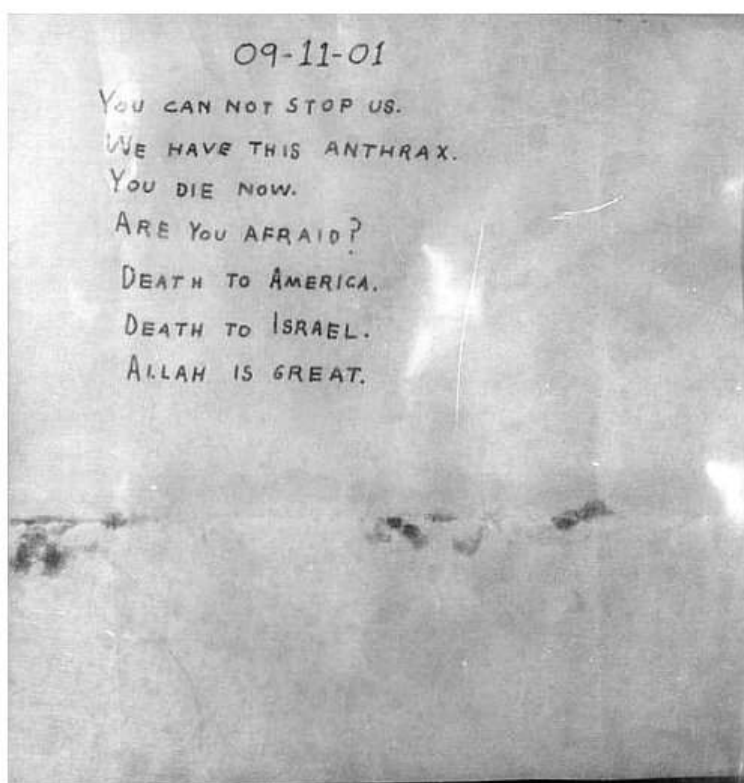 09-11-01
YOU CAN NOT STOP US.
WE HAVE THIS ANTHRAX.
YOU DIE NOW.
ARE YOU AFRAID?
DEATH TO AMERICA.
DEATH TO ISRAEL.
ALLAH IS GREAT.